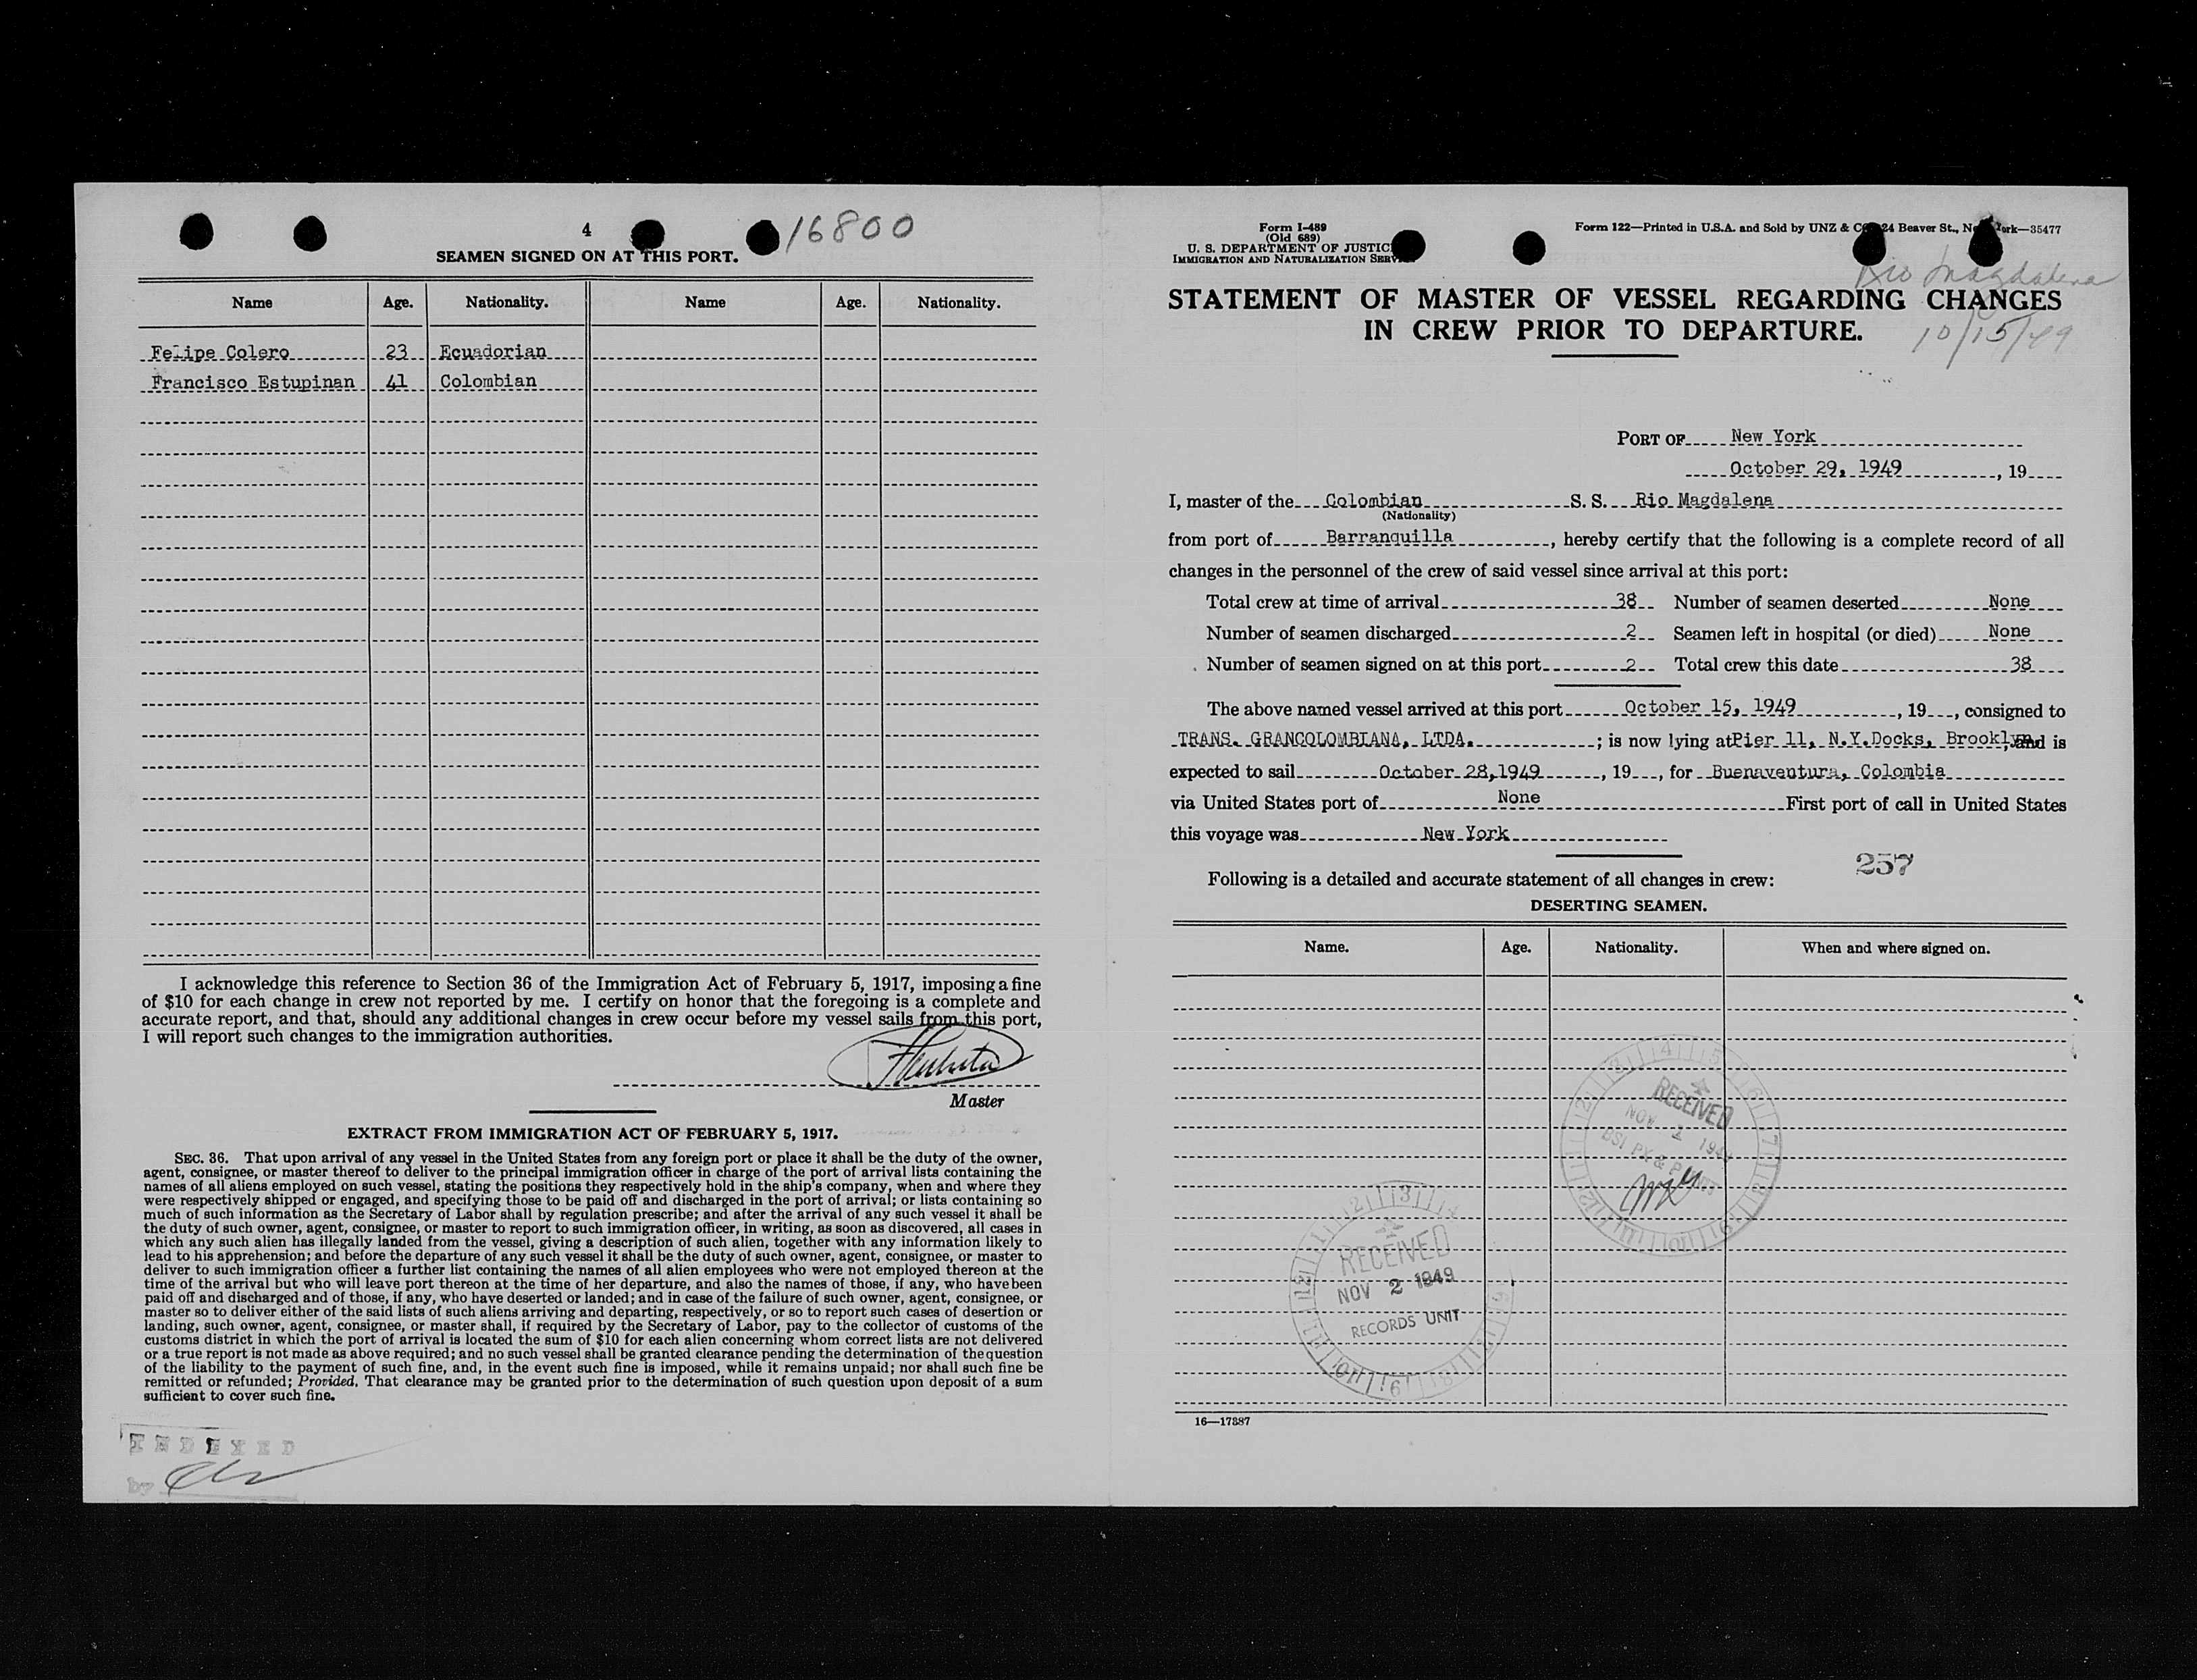 4
16800
SEAMEN SIGNED ON AT THIS PORT.
Name Age. Nationality. Name Age. Nationality.
Felipe Colero 23 Ecuadorian
Francisco Estupinan 41 Colombian
I acknowledge this reference to Section 36 of the Immigration Act of February 5, 1917, imposing a fine
of $10 for each change in crew not reported by me. I certify on honor that the foregoing is a complete and
accurate report, and that, should any additional changes in crew occur before my vessel sails from this port,
I will report such changes to the immigration authorities.
Master
EXTRACT FROM IMMIGRATION ACT OF FEBRUARY 5, 1917.
SEC. 36. That upon arrival of any vessel in the United States from any foreign port or place it shall be the duty of the owner,
agent, consignee, or master thereof to deliver to the principal immigration officer in charge of the port of arrival lists containing the
names of all aliens employed on such vessel, stating the positions they respectively hold in the ship's company, when and where they
were respectively shipped or engaged, and specifying those to be paid off and discharged in the port of arrival; or lists containing so
much of such information as the Secretary of Labor shall by regulation prescribe; and after the arrival of any such vessel it shall be
the duty of such owner, agent, consignee, or master to report to such immigration officer, in writing, as soon as discovered, all cases in
which any such alien has illegally landed from the vessel, giving a description of such alien, together with any information likely to
lead to his apprehension; and before the departure of any such vessel it shall be the duty of such owner, agent, consignee, or master to
deliver to such immigration officer a further list containing the names of all alien employees who were not employed thereon at the
time of the arrival but who will leave port thereon at the time of her departure, and also the names of those, if any, who have been
paid off and discharged and of those, if any, who have deserted or landed; and in case of the failure of such owner, agent, consignee, or
master so to deliver either of the said lists of such aliens arriving and departing, respectively, or so to report such cases of desertion or
landing, such owner, agent, consignee, or master shall, if required by the Secretary of Labor, pay to the collector of customs of the
customs district in which the port of arrival is located the sum of $10 for each alien concerning whom correct lists are not delivered
or a true report is not made as above required; and no such vessel shall be granted clearance pending the determination of the question
of the liability to the payment of such fine, and, in the event such fine is imposed, while it remains unpaid; nor shall such fine be
remitted or refunded; Provided, That clearance may be granted prior to the determination of such question upon deposit of a sum
sufficient to cover such fine.
INDEXED
by
Form I-489
(Old 689)
U. S. DEPARTMENT OF JUSTICE
IMMIGRATION AND NATURALIZATION SERV
Form 122—Printed in U.S.A. and Sold by UNZ & CO 24 Beaver St., New York—35477
Rio Magdalena
STATEMENT OF MASTER OF VESSEL REGARDING CHANGES
IN CREW PRIOR TO DEPARTURE.
10/15/49
PORT OF New York
October 29, 1949, 19
I, master of the Colombian S. S. Rio Magdalena
(Nationality)
from port of Barranquilla, hereby certify that the following is a complete record of all
changes in the personnel of the crew of said vessel since arrival at this port:
Total crew at time of arrival 38 Number of seamen deserted None
Number of seamen discharged 2 Seamen left in hospital (or died) None
Number of seamen signed on at this port 2 Total crew this date 38
The above named vessel arrived at this port October 15, 1949, 19, consigned to
TRANS. GRANCOLOMBIANA, LTDA. ; is now lying at Pier 11, N.Y.Docks, Brooklyn, and is
expected to sail October 28,1949, 19, for Buenaventura, Colombia
via United States port of None First port of call in United States
this voyage was New York
257
Following is a detailed and accurate statement of all changes in crew:
DESERTING SEAMEN.
Name. Age. Nationality. When and where signed on.
RECEIVED
NOV 2 1949
RECORDS UNIT
RECEIVED
NOV
16—17887